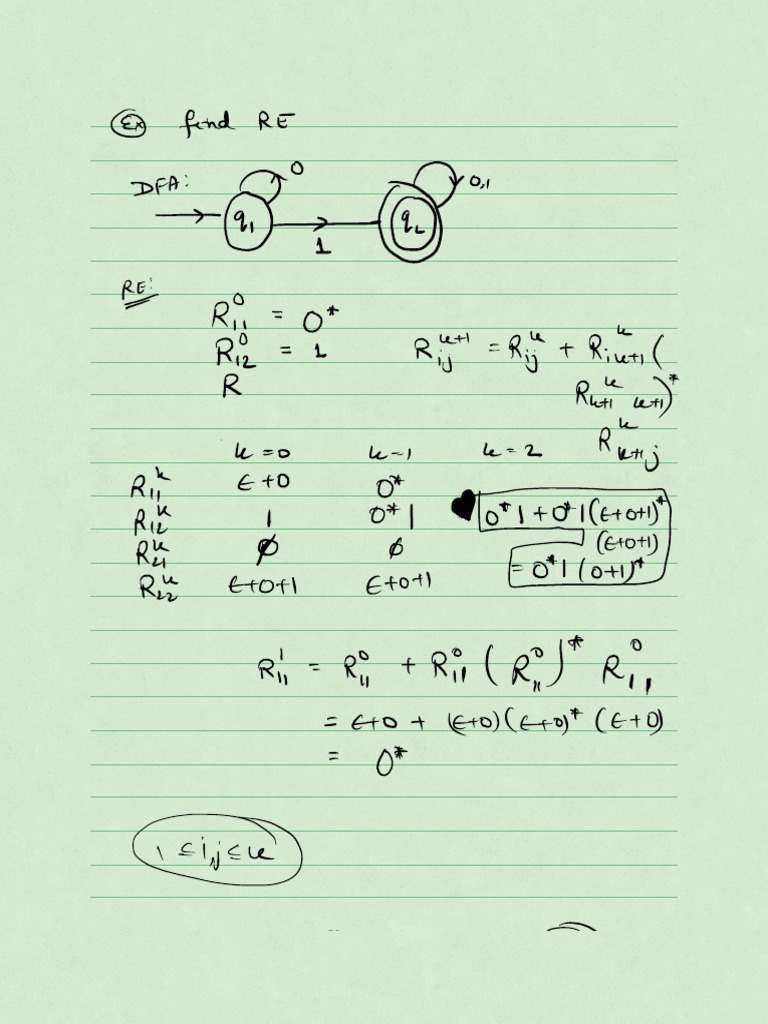 Ex find RE
DFA: q₁ 0 1 q₂ 0,1
RE:
R₁₁⁰ = 0*
R₁₂⁰ = 1
R
Rᵢⱼᵏ⁺¹ = Rᵢⱼᵏ + Rᵢ ₖ₊₁ᵏ (
Rₖ₊₁ ₖ₊₁ᵏ )*
Rₖ₊₁ ⱼᵏ
k=0 k=1 k=2
R₁₁ᵏ ε+0 0*
R₁₂ᵏ 1 0*1 0*1+0*1(ε+0+1)*
(ε+0+1)
R₂₁ᵏ ∅ ∅
= 0*1(0+1)*
R₂₂ᵏ ε+0+1 ε+0+1
R₁₁¹ = R₁₁⁰ + R₁₁⁰ (R₁₁⁰)* R₁₁⁰
= ε+0 + (ε+0)(ε+0)* (ε+0)
= 0*
1 ≤ i,j ≤ k